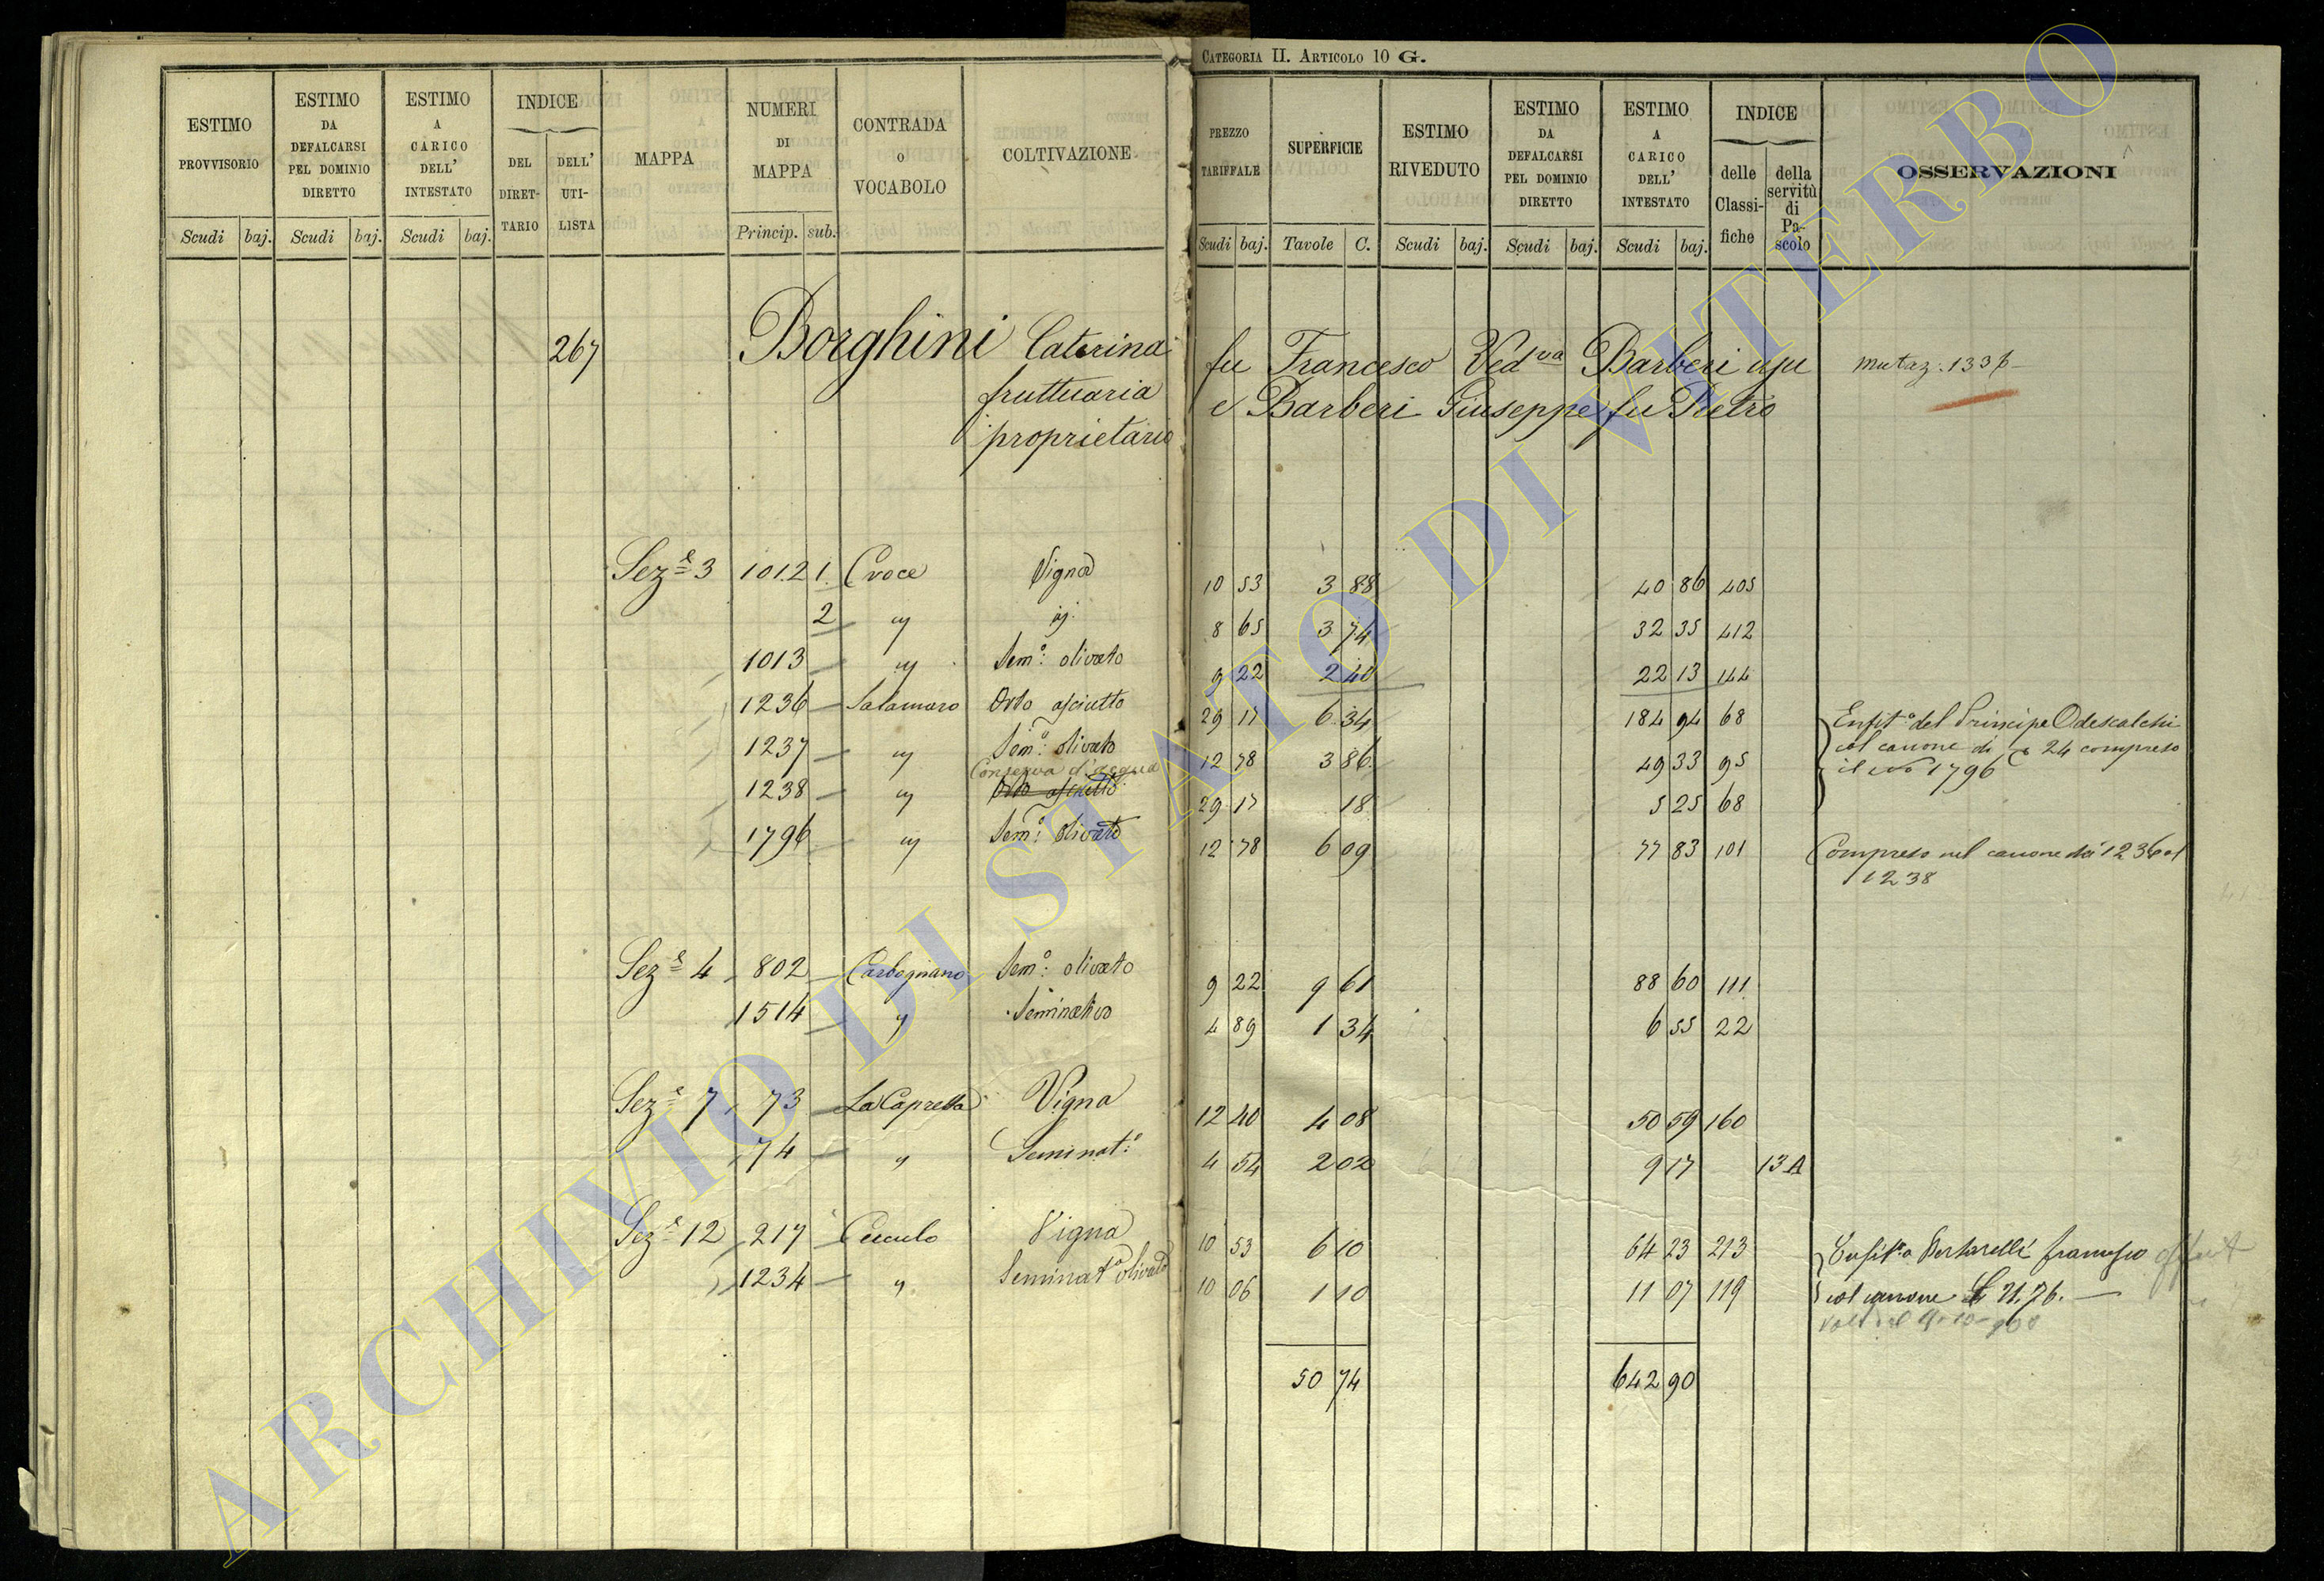 CATEGORIA II. ARTICOLO 10 G.
ESTIMO PROVVISORIO | ESTIMO DA DEFALCARSI PEL DOMINIO DIRETTO | ESTIMO A CARICO DELL' INTESTATO | INDICE | MAPPA | NUMERI DI MAPPA | CONTRADA O VOCABOLO | COLTIVAZIONE | PREZZO TARIFFALE | SUPERFICIE | ESTIMO RIVEDUTO | ESTIMO DA DEFALCARSI PEL DOMINIO DIRETTO | ESTIMO A CARICO DELL' INTESTATO | INDICE | OSSERVAZIONI
DEL DIRETTARIO | DELL' UTILISTA | delle Classifiche | della servitù di Pascolo
Scudi | baj. | Scudi | baj. | Scudi | baj. | Princip. | sub. | Scudi | baj. | Tavole | C. | Scudi | baj. | Scudi | baj. | Scudi | baj.
267 Borghini Caterina fu Francesco Ved.va Barberi usu mutaz: 133
fruttuaria e Barberi Giuseppe fu Pietro
proprietario
Sez.e 3 1012 1 Croce Vigna 10 53 3 88 40 86 405
2 " id. 8 65 3 74 32 35 412
1013 " Sem.o: olivato 9 22 2 40 22 13 144
1236 Salamaro Orto asciutto 29 17 6 34 184 94 68 Enfit.o del Principe Odescalchi
1237 " Sem.o: olivato 12 78 3 86 49 33 95 col canone di 24 compreso
Conserva d'acqua il No 1796
1238 " Orto asciutto 29 17 18 5 25 68
1796 " Sem.o: olivato 12 78 6 09 77 83 101 Compreso nel canone dei 1236 al
1238
Sez.e 4 802 Carbognano Sem.o: olivato 9 22 9 61 88 60 111
1514 " Seminativo 4 89 1 34 6 55 22
Sez.e 7 73 La Capretta Vigna 12 40 4 08 50 59 160
74 " Seminat.o 4 54 2 02 9 17 13 A
Sez.e 12 217 Cuculo Vigna 10 53 6 10 64 23 213 Enfit.a Bertarelli Francesco
1234 " Seminat.o olivato 10 06 1 10 11 07 119 col canone £ 21.76.
50 74 642 90
ARCHIVIO DI STATO DI VITERBO